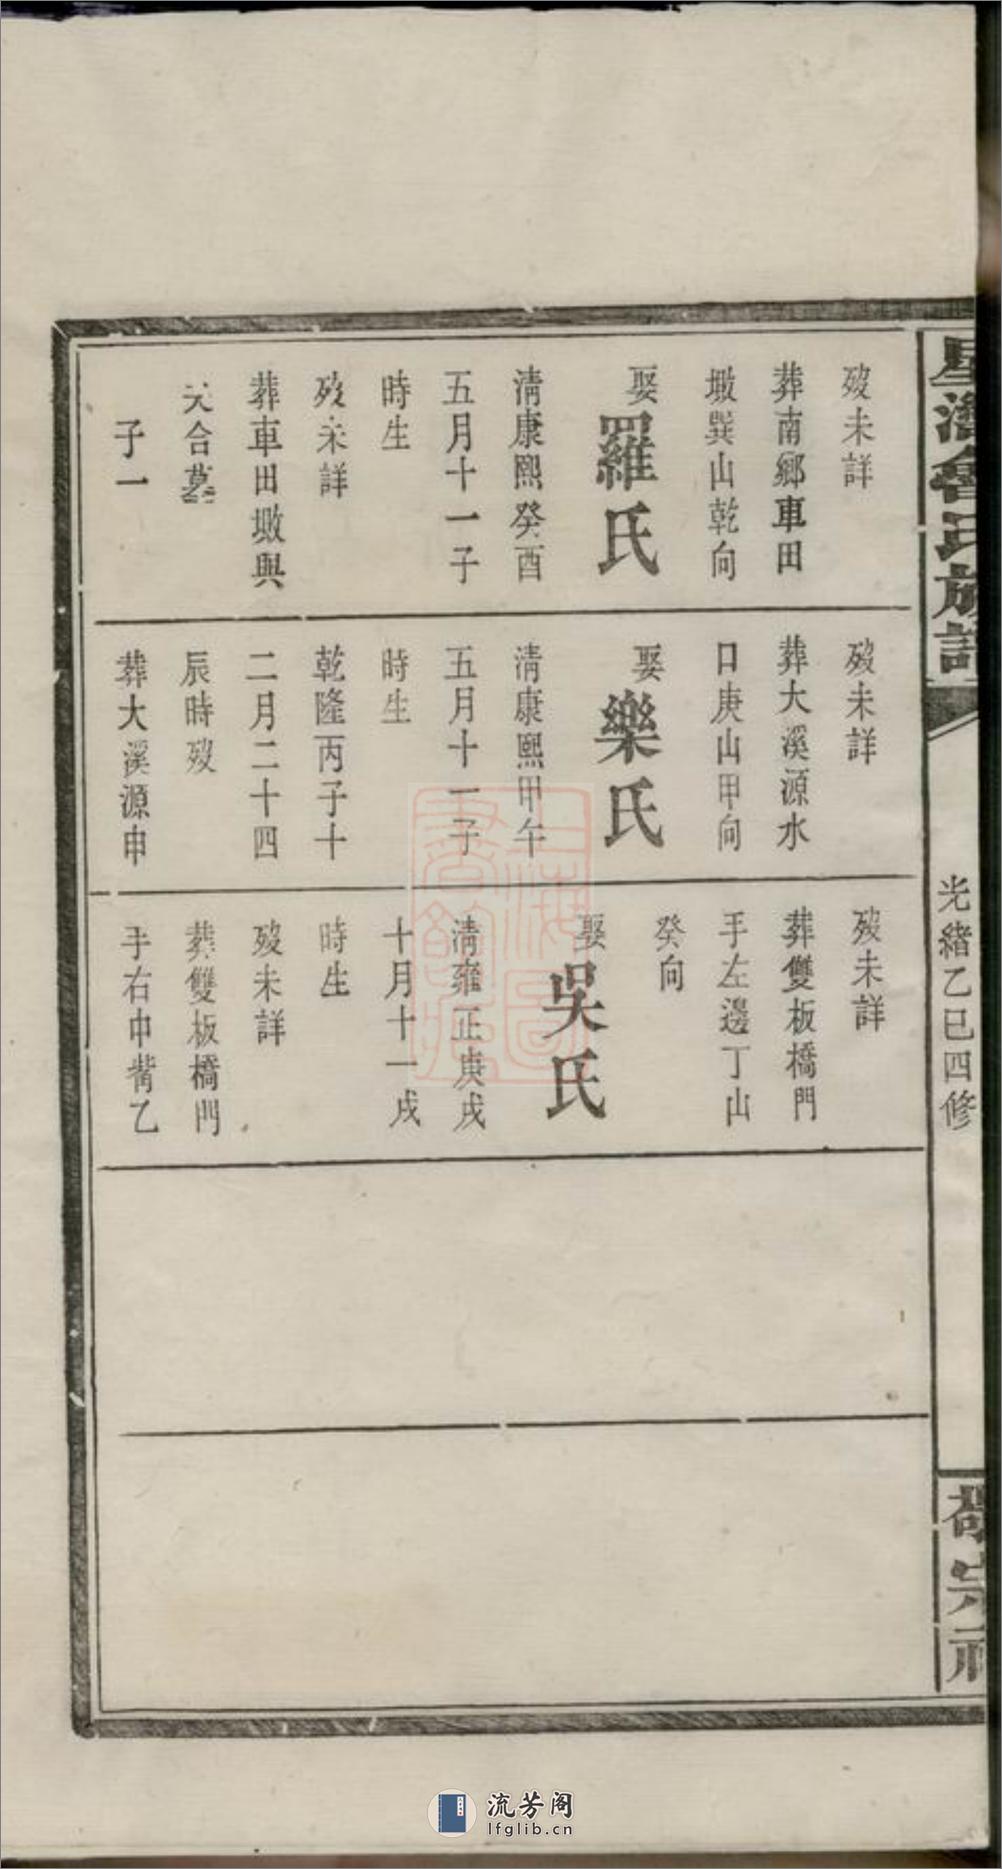 歿未詳
葬南鄉車田
墩巽山乾向
娶
羅氏
淸康熙癸酉
五月十一子
時生
歿未詳
葬車田墩與
夫合墓
子一
歿未詳
葬大溪源水
口庚山甲向
娶
樂氏
淸康熙甲午
五月十一子
時生
乾隆丙子十
二月二十四
辰時歿
葬大溪源申
歿未詳
葬雙板橋門
手左邊丁山
癸向
娶
吳氏
淸雍正庚戌
十月十一戌
時生
歿未詳
葬雙板橋門
手右巾觜乙
氏族譜
光緒乙巳四修
流芳阁
lfglib.cn